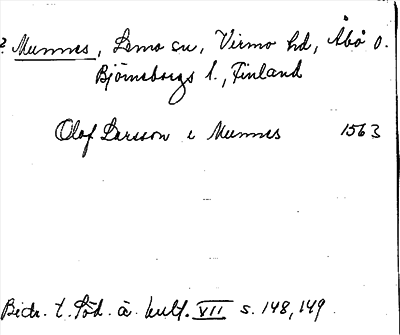 ? Mumnes, Lemo sn, Virmo hd, Åbo o.
Björneborgs l., Finland
Olof Larsson i Mumnes 1563
Bidr. t. Söd. à. kult. VII s. 148, 149